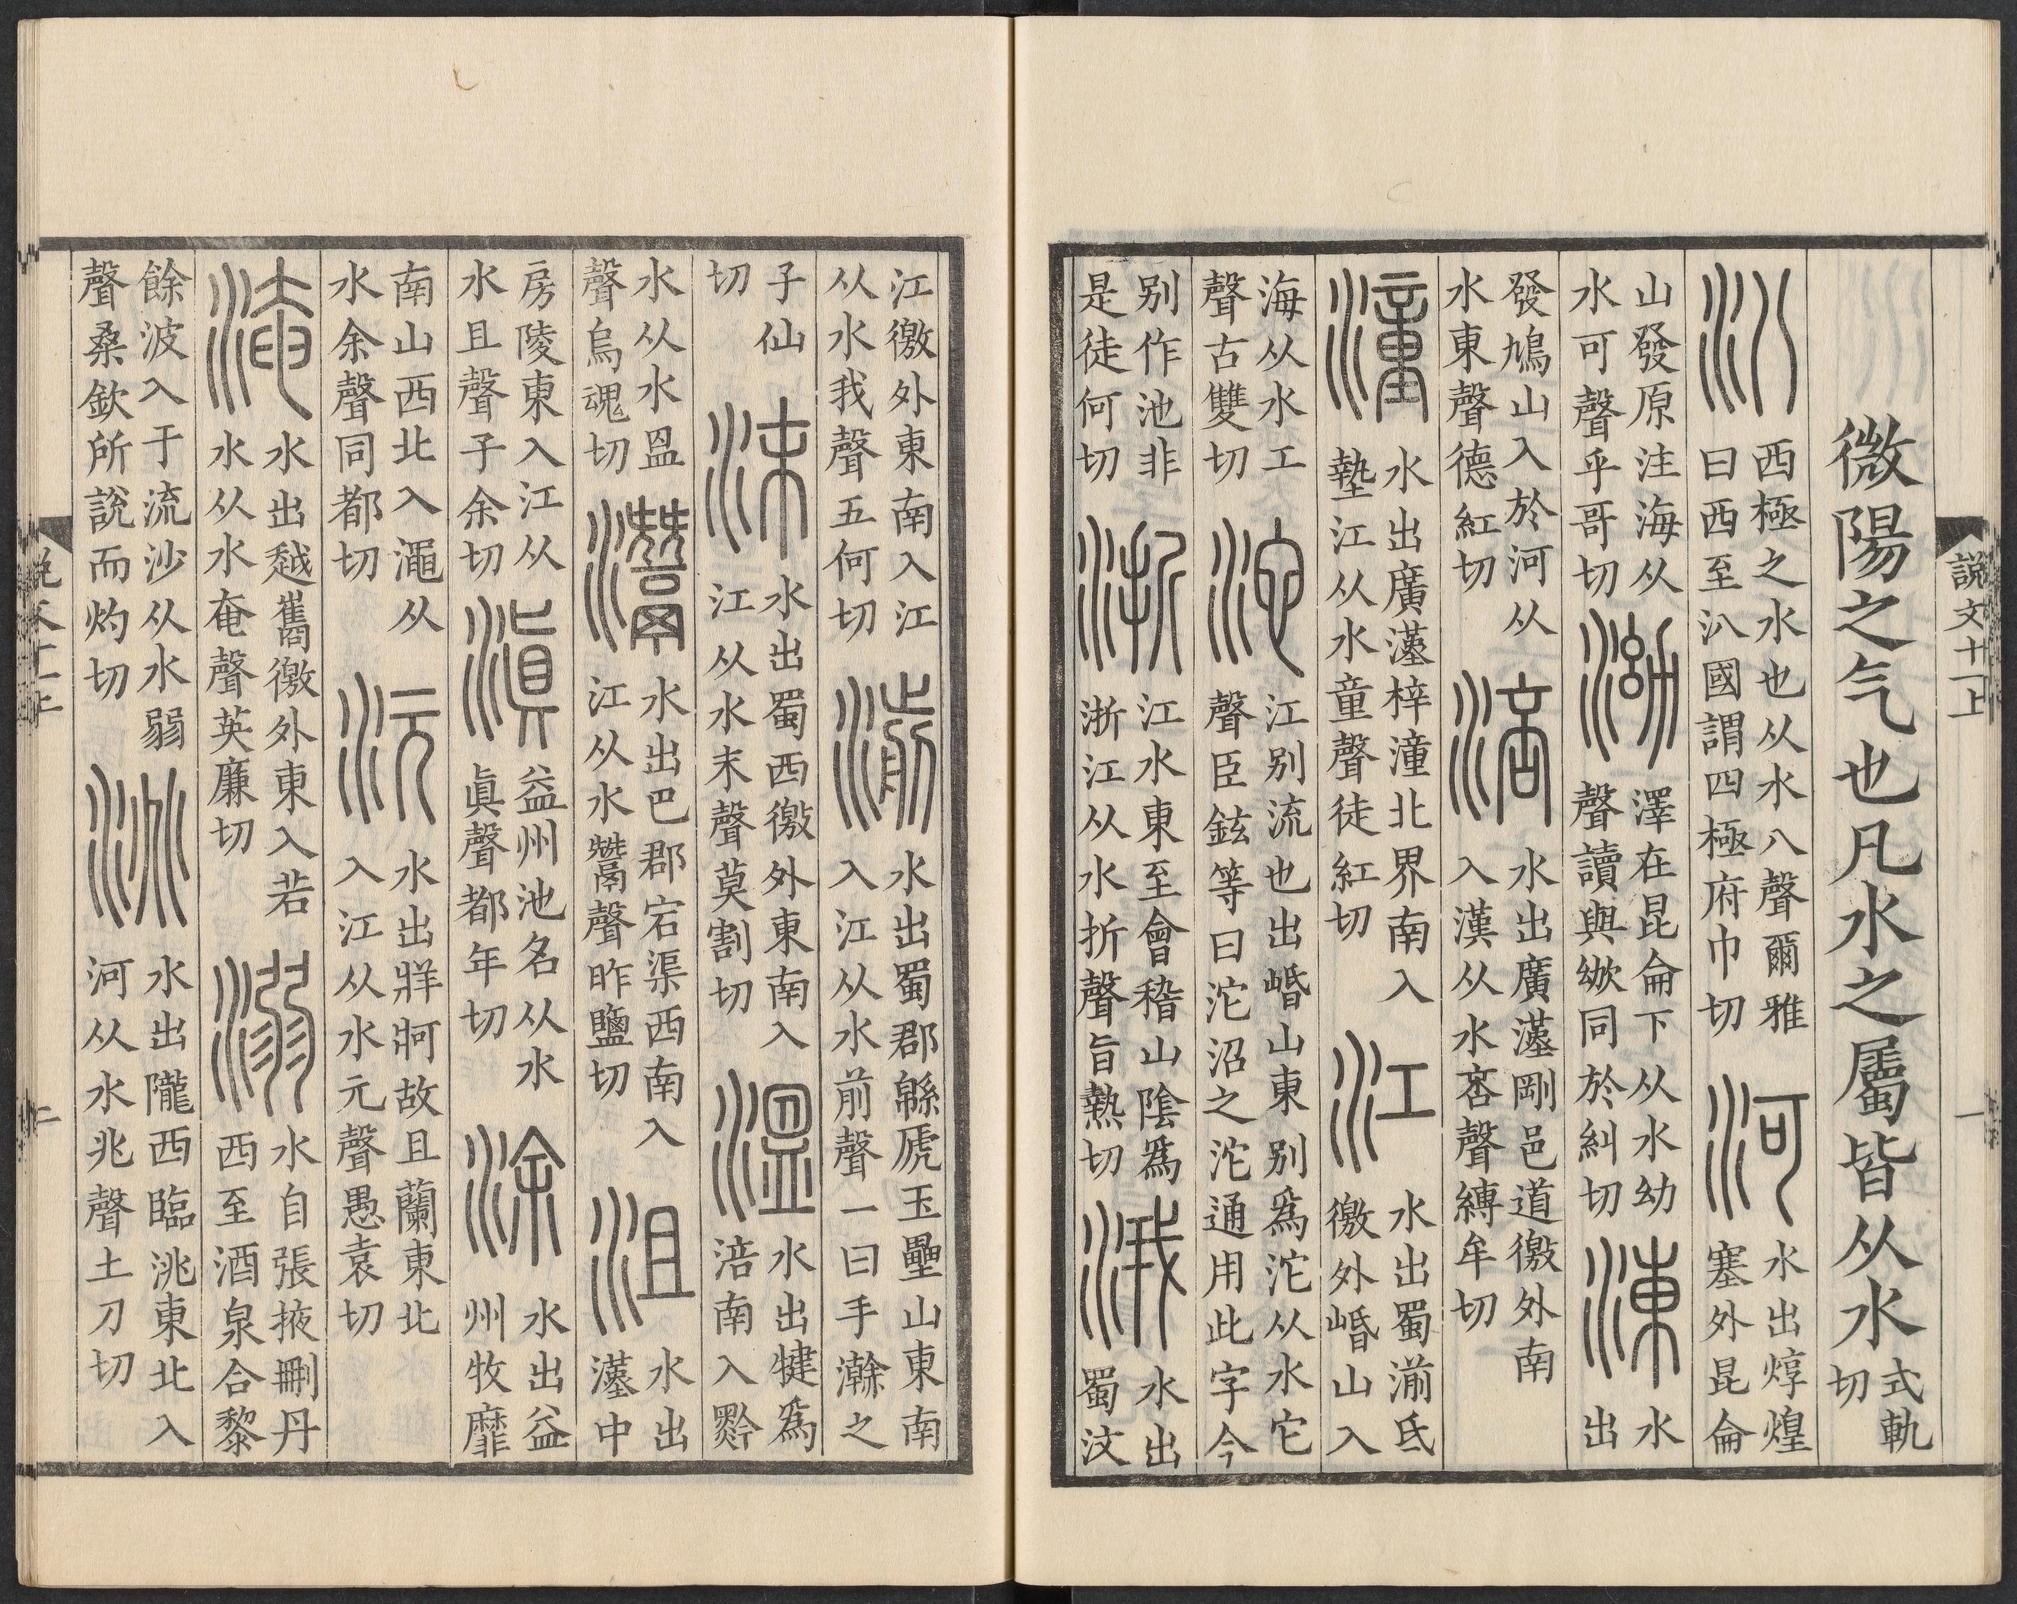 説文十一上
一
微陽之气也凡水之屬皆从水式軌切
汃西極之水也从水八聲爾雅曰西至汃國謂四極府巾切河水出焞煌塞外昆侖
山發原注海从水可聲乎哥切泑澤在昆侖下从水幼聲讀與㛂同於糾切涷水出
發鳩山入於河从水東聲德紅切涪水出廣漢剛邑道徼外南入漢从水咅聲縛牟切
潼水出廣漢梓潼北界南入墊江从水童聲徒紅切江水出蜀湔氐徼外崏山入
海从水工聲古雙切沱江別流也出崏山東別爲沱从水它聲臣鉉等曰沱沼之沱通用此字今
別作池非是徒何切浙江水東至會稽山陰爲浙江从水折聲旨熱切涐水出蜀汶
江徼外東南入江从水我聲五何切湔水出蜀郡緜虒玉壘山東南入江从水前聲一曰手瀚之
子仙切沬水出蜀西徼外東南入江从水末聲莫割切溫水出犍爲涪南入黔
水从水𥁕聲烏魂切灊水出巴郡宕渠西南入江从水鬵聲昨鹽切沮水出漢中
房陵東入江从水且聲子余切滇益州池名从水眞聲都年切涂水出益州牧靡
南山西北入澠从水余聲同都切沅水出牂牁故且蘭東北入江从水元聲愚袁切
淹水出越巂徼外東入若水从水奄聲英廉切溺水自張掖刪丹西至酒泉合黎
餘波入于流沙从水弱聲桑欽所說而灼切洮水出隴西臨洮東北入河从水兆聲土刀切
説文十一上
二